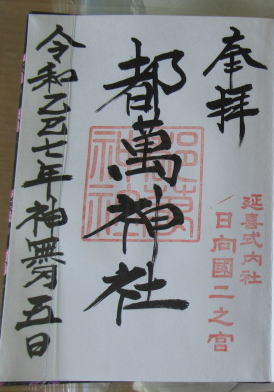 奉拝
延喜式内社
日向國二之宮
都萬神社
都萬神社
令和乙巳七年神無月五日